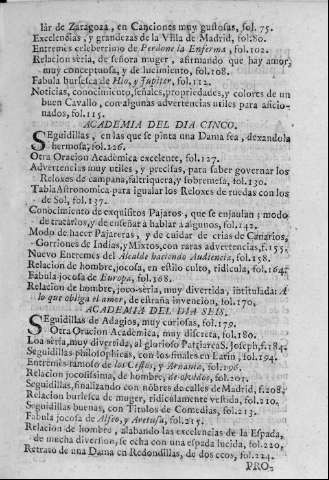 lár de Zaragoza, en Canciones muy gustosas, fol. 75.
Excelencias, y grandezas de la Villa de Madrid, fol. 80.
Entremés celeberrimo de Perdone la Enferma, fol. 102.
Relacion séria, de señora muger, afirmando que hay amor,
muy conceptuosa, y de lucimiento, fol. 108.
Fabula burlesca de Hio, y Jupiter, fol. 112.
Noticias, conocimiento, señales, propriedades, y colores de un
buen Cavallo, con algunas advertencias utiles para aficio-
nados, fol. 115.
ACADEMIA DEL DIA CINCO.
SEguidillas, en las que se pinta una Dama fea, dexandola
hermosa, fol. 126.
Otra Oracion Academica excelente, fol. 127.
Advertencias muy utiles, y precisas, para saber governar los
Reloxes de campana, faltriquera, y sobremesa, fol. 130.
Tabla Astronomica para igualar los Reloxes de ruedas con los
de Sol, fol. 137.
Conocimiento de exquisitos Pajaros, que se enjaulan; modo
de tratarlos, y de enseñar à hablar à algunos, fol. 142.
Modo de hacer Pajareras, y de cuidar de crias de Canarios,
Gorriones de Indias, y Mixtos, con raras advertencias, f. 155.
Nuevo Entremés del Alcalde haciendo Audiencia, fol. 158.
Relacion de hombre, jocosa, en estilo culto, ridicula, fol. 164.
Fabula jocosa de Europa, fol. 168.
Relacion de hombre, joco-séria, muy divertida, intitulada: A
lo que obliga el amor, de estraña invencion, fol. 170.
ACADEMIA DEL DIA SEIS.
SEguidillas de Adagios, muy curiosas, fol. 179.
Otra Oracion Academica, muy discreta, fol. 180.
Loa séria, muy divertida, al glorioso Patriarca S. Joseph, f. 184.
Seguidillas philosophicas, con los finales en Latin, fol. 194.
Entremés famoso de los Cestos, y Arnauta, fol. 196.
Relacion jocosissima, de hombre, de olvidos, fol. 203.
Seguidillas, finalizando con nõbres de calles de Madrid, f. 208.
Relacion burlesca de muger, ridiculamente vestida, fol. 210.
Seguidillas buenas, con Titulos de Comedias, fol. 213.
Fabula jocosa de Alfeo, y Aretusa, fol. 215.
Relacion de hombre, alabando las excelencias de la Espada,
de mucha diversion, se echa con una espada lucida, fol. 220.
Retrato de una Dama en Redondillas, de dos ecos, fol. 224.
PRO-